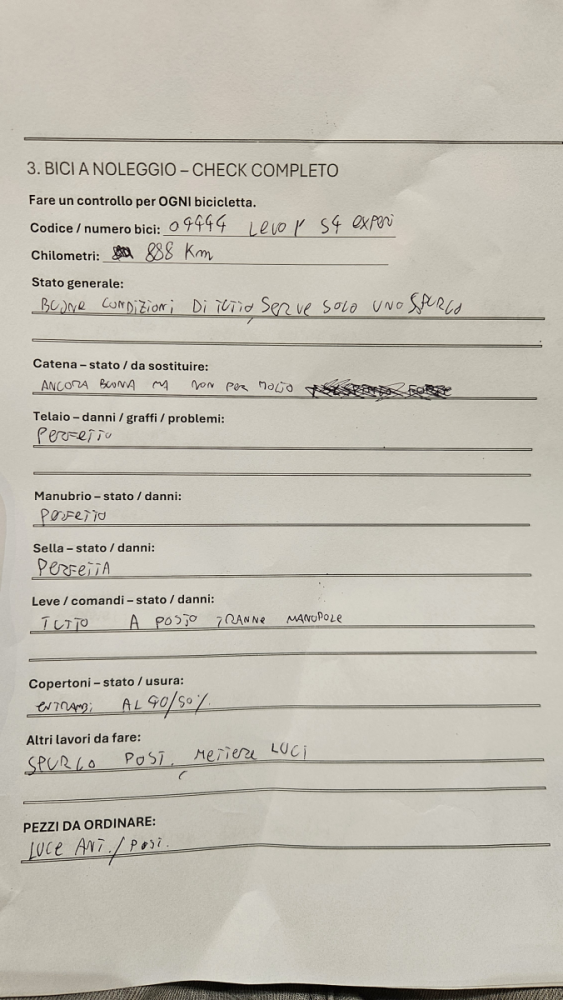 3. BICI A NOLEGGIO – CHECK COMPLETO
Fare un controllo per OGNI bicicletta.
Codice / numero bici: 09444 LEVO S4 EXPERI
Chilometri: 888 Km
Stato generale:
BUONE CONDIZIONI DI TUTTO, SERVE SOLO UNO SPURGO
Catena – stato / da sostituire:
ANCORA BUONA MA NON PER MOLTO
Telaio – danni / graffi / problemi:
PERFETTO
Manubrio – stato / danni:
PERFETTO
Sella – stato / danni:
PERFETTA
Leve / comandi – stato / danni:
TUTTO A POSTO TRANNE MANOPOLE
Copertoni – stato / usura:
ENTRAMBI AL 90/90%
Altri lavori da fare:
SPURGO POST, METTERE LUCI
PEZZI DA ORDINARE:
LUCE ANT. / POST.